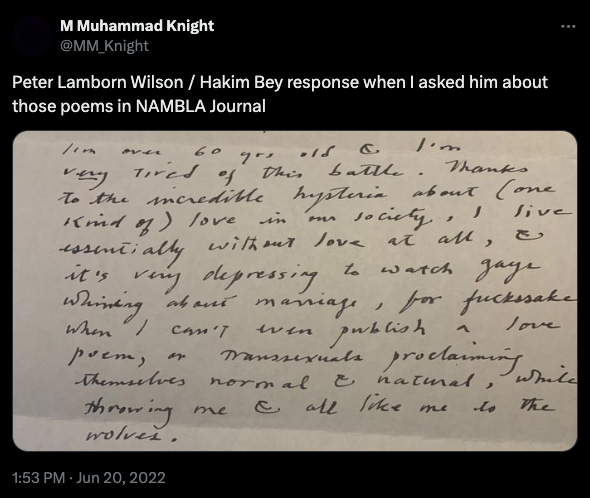 M Muhammad Knight
@MM_Knight
Peter Lamborn Wilson / Hakim Bey response when I asked him about
those poems in NAMBLA Journal
I'm over 60 yrs old & I'm
very tired of this battle. Thanks
to the incredible hysteria about (one
kind of) love in our society, I live
essentially without love at all, &
it's very depressing to watch gays
whining about marriage, for fuckssake
when I can't even publish a love
poem, or transsexuals proclaiming
themselves normal & natural, while
throwing me & all like me to the
wolves.
1:53 PM · Jun 20, 2022